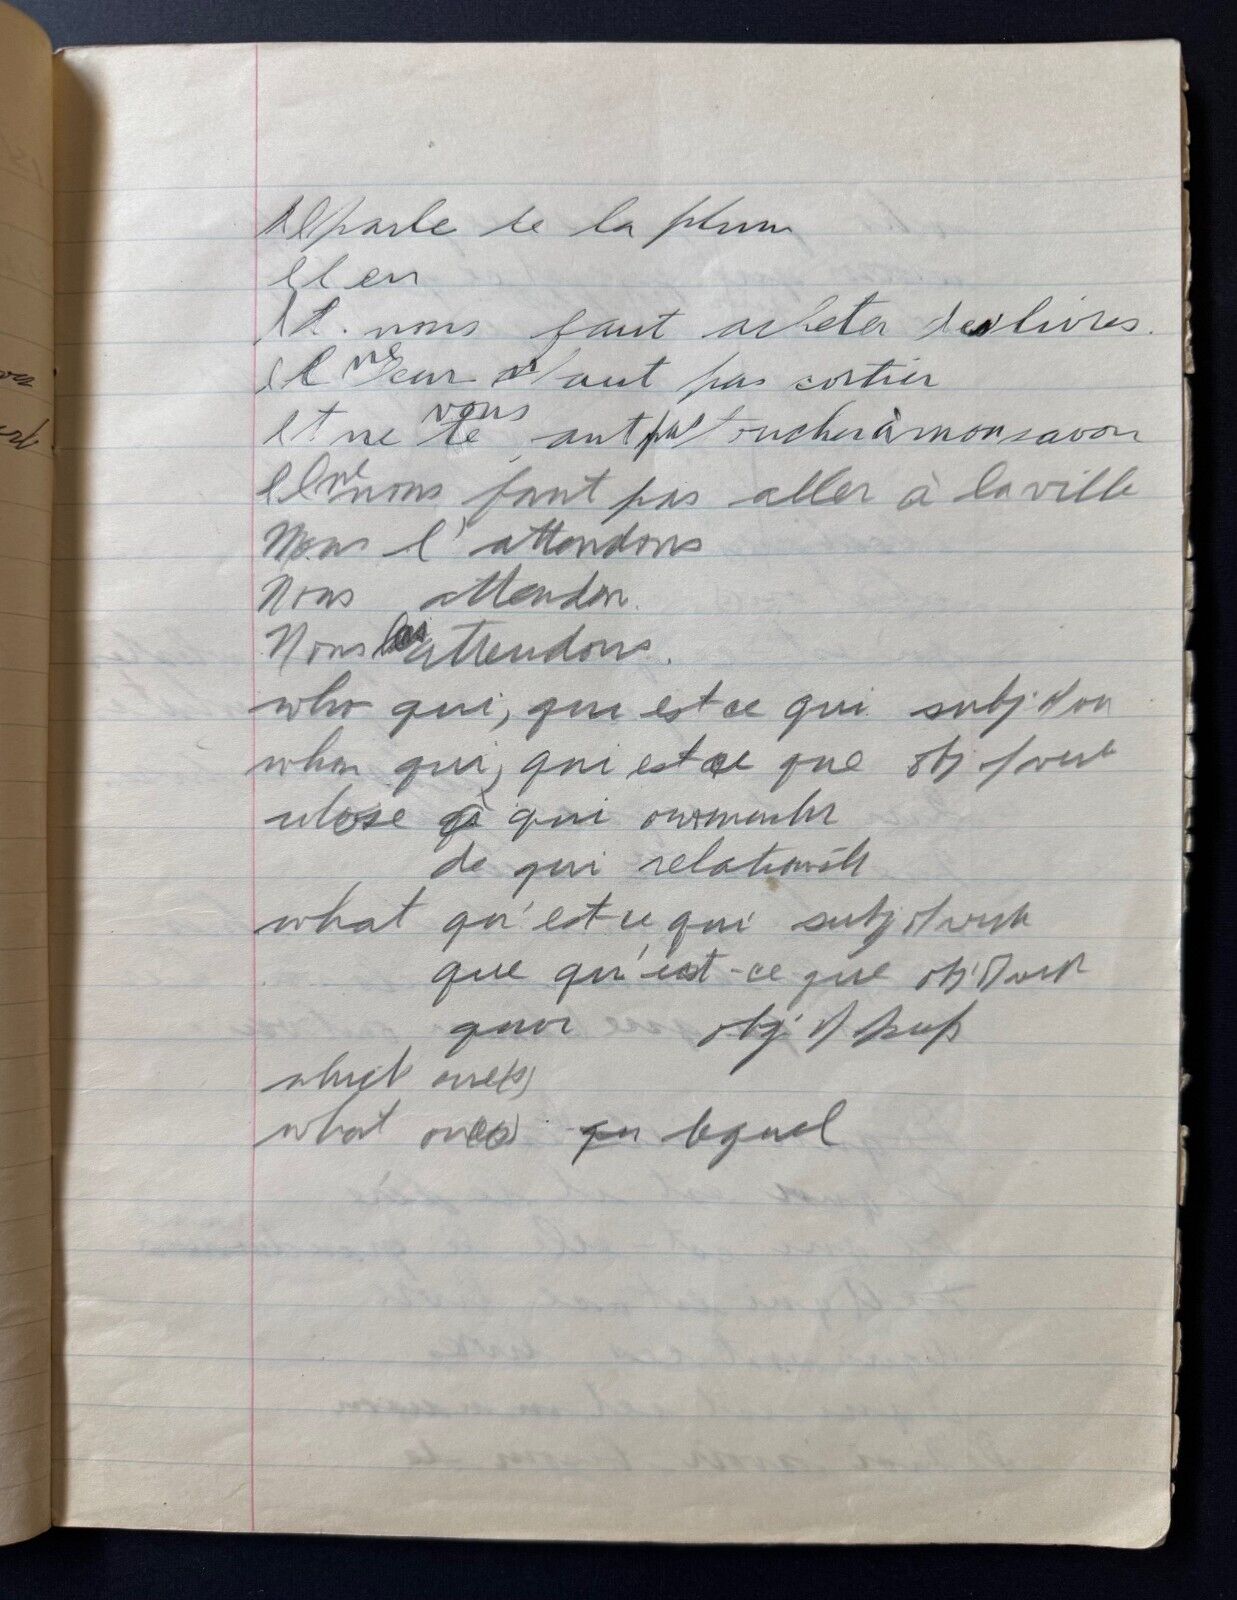 Il parle de la plum
Il en
Il nous faut acheter des livres.
Il ne leur faut pas sortir
Il ne vous faut pas toucher à mon savon
Il ne nous faut pas aller à la ville
Nous l'attendons
Nous attendon.
Nous les attendons.
who qui, qui est ce qui subj of
whom qui, qui est ce que obj of verb
whose à qui ownership
de qui relationship
what qu'est-ce qui subj of verb
que qu'est-ce que obj of verb
quoi obj of prep
which one(s)
what one(s) lequel